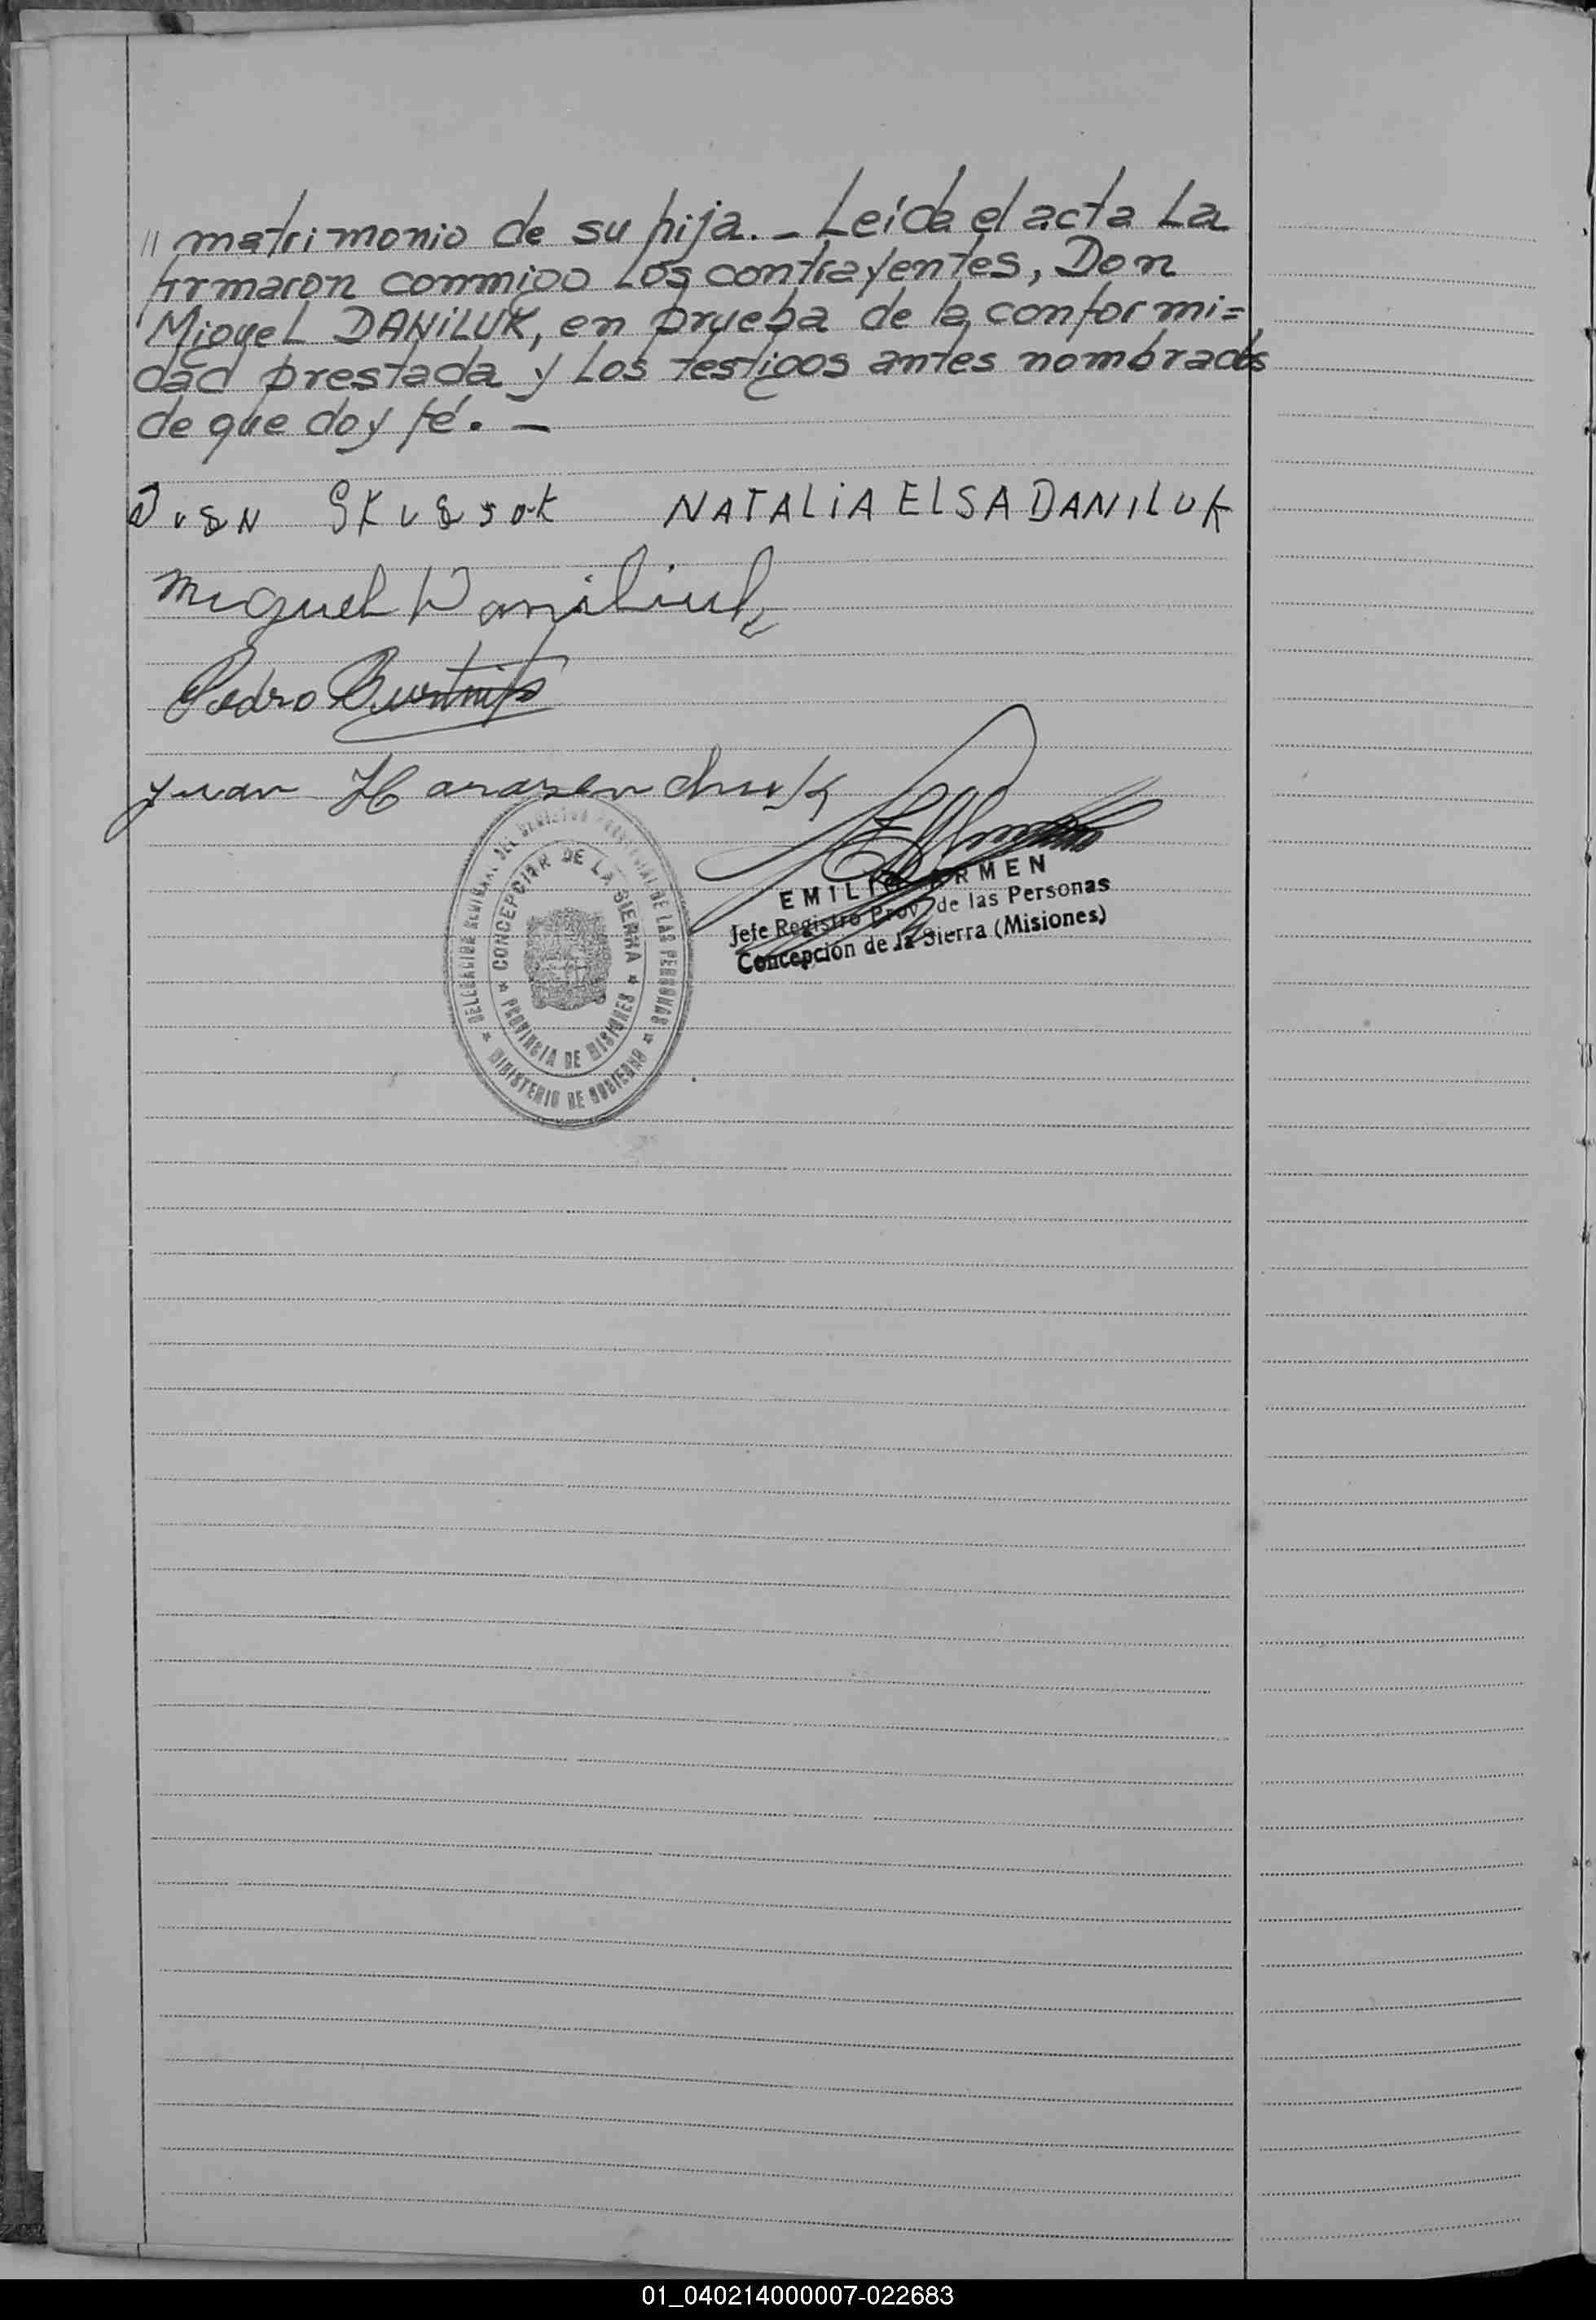 // matrimonio de su hija. - Leída el acta La
firmaron conmigo Los contrayentes, Don
Miguel DANiLUK, en prueba de la conformi=
dad prestada y Los testigos antes nombrados
de que doy fé. -
NATALiA ELSA DANILUK
Miguel Daniliuk
Pedro
Juan Harasemchuk
EMILIO
Jefe Registro Prov. de las Personas
Concepción de la Sierra (Misiones)
DELEGACION REGIONAL DEL REGISTRO PROVINCIAL DE LAS PERSONAS
CONCEPCION DE LA SIERRA
PROVINCIA DE MISIONES
MINISTERIO DE GOBIERNO
01_040214000007-022683